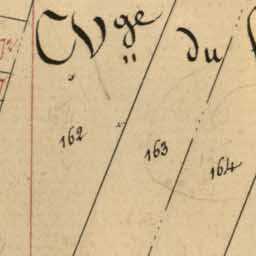 CVge du
162
163
164